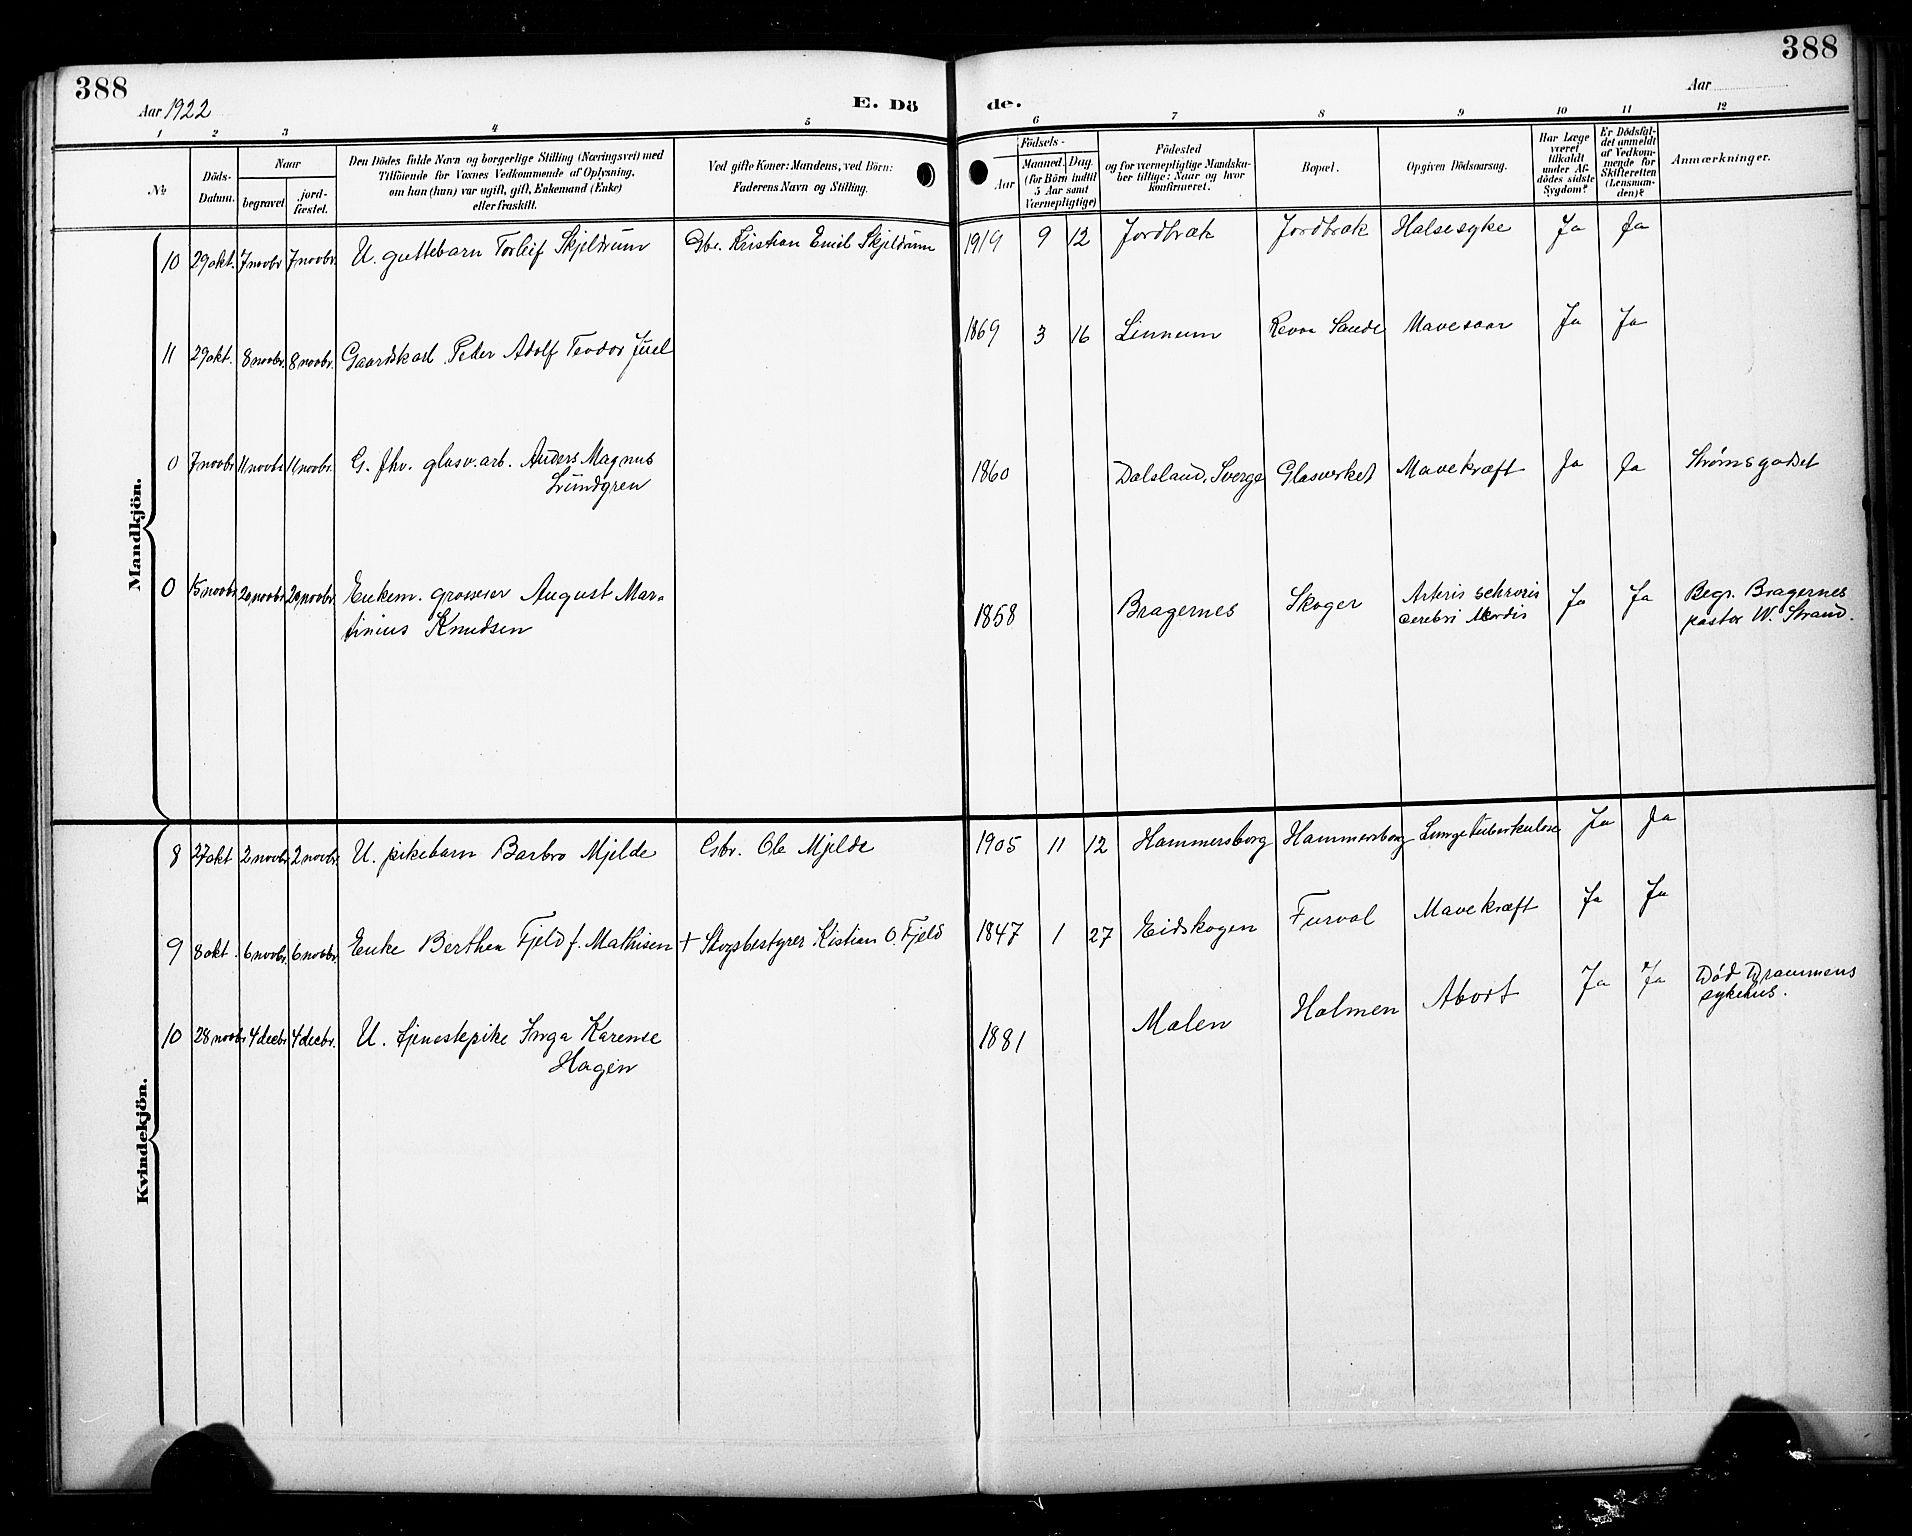 388
388
Aar 1922
E. Dö
de.
Aar
1 2 3 4 5 6 7 8 9 10 11 12
No
Döds-Datum.
Naar
begravet.
jordfæstet.
Den Dödes fulde Navn og borgerlige Stilling (Næringsvei) med
Tilföiende for Voxnes Vedkommende af Oplysning,
om han (hun) var ugift, gift, Enkemand (Enke)
eller fraskilt.
Ved gifte Koner: Mandens, ved Börn:
Faderens Navn og Stilling.
Födsels-
Aar
Maaned. Dag.
(for Börn indtil
5 Aar samt
Værnepligtige)
Födested
og for værnepligtige Mandska-
ber tillige: Naar og hvor
konfirmeret.
Bopæl.
Opgiven Dödsaarsag.
Har Læge
været
tilkaldt
under Af-
dödes sidste
Sygdom?
Er Dödsfal-
det anmeldt
af Vedkom-
mende for
Skifteretten
(Lensman-
den)?
Anmærkninger.
Mandkjön.
10 29 okt. 7 novbr. 7 novbr. U. guttebarn Torleif Skjeldrum Gbr. Kristian Emil Skjeldrum 1919 9 12 Jordbræk Jordbræk Halsesyke Ja Ja
11 29 okt. 8 novbr. 8 novbr. Gaardskarl Peder Adolf Teodor Juel 1869 3 16 Linnum Revaa Sande Mavesaar Ja Ja
0 7 novbr. 11 novbr. 11 novbr. G. fhv. glasv.arb. Anders Magnus 1860 Dalsland, Sverge Glasverket Mavekræft Ja Ja Strømsgodset
Lundgren
0 15 novbr. 20 novbr. 20 novbr. Enkem. grosserer August Mar- 1858 Bragernes Skoger Arteris Ja Ja Begr. Bragernes
tinius Knudsen cerebri pastor W. Strand.
Kvindekjön.
8 27 okt 2 novbr. 2 novbr. U. pikebarn Barbro Mjelde Gbr. Ole Mjelde 1905 11 12 Hammersborg Hammersborg Lungetuberkulose Ja Ja
9 8 okt. 6 novbr. 6 novbr. Enke Berthea Fjeld f. Mathisen + Skogsbestyrer Kistian O. Fjeld 1847 1 27 Eidskogen Furval Mavekræft Ja Ja
10 28 novbr 4 decbr. 4 decbr. U. tjenestepike Inga Karense 1881 Malen Holmen Abort Ja Ja Død Drammens
Hagen sykehus.